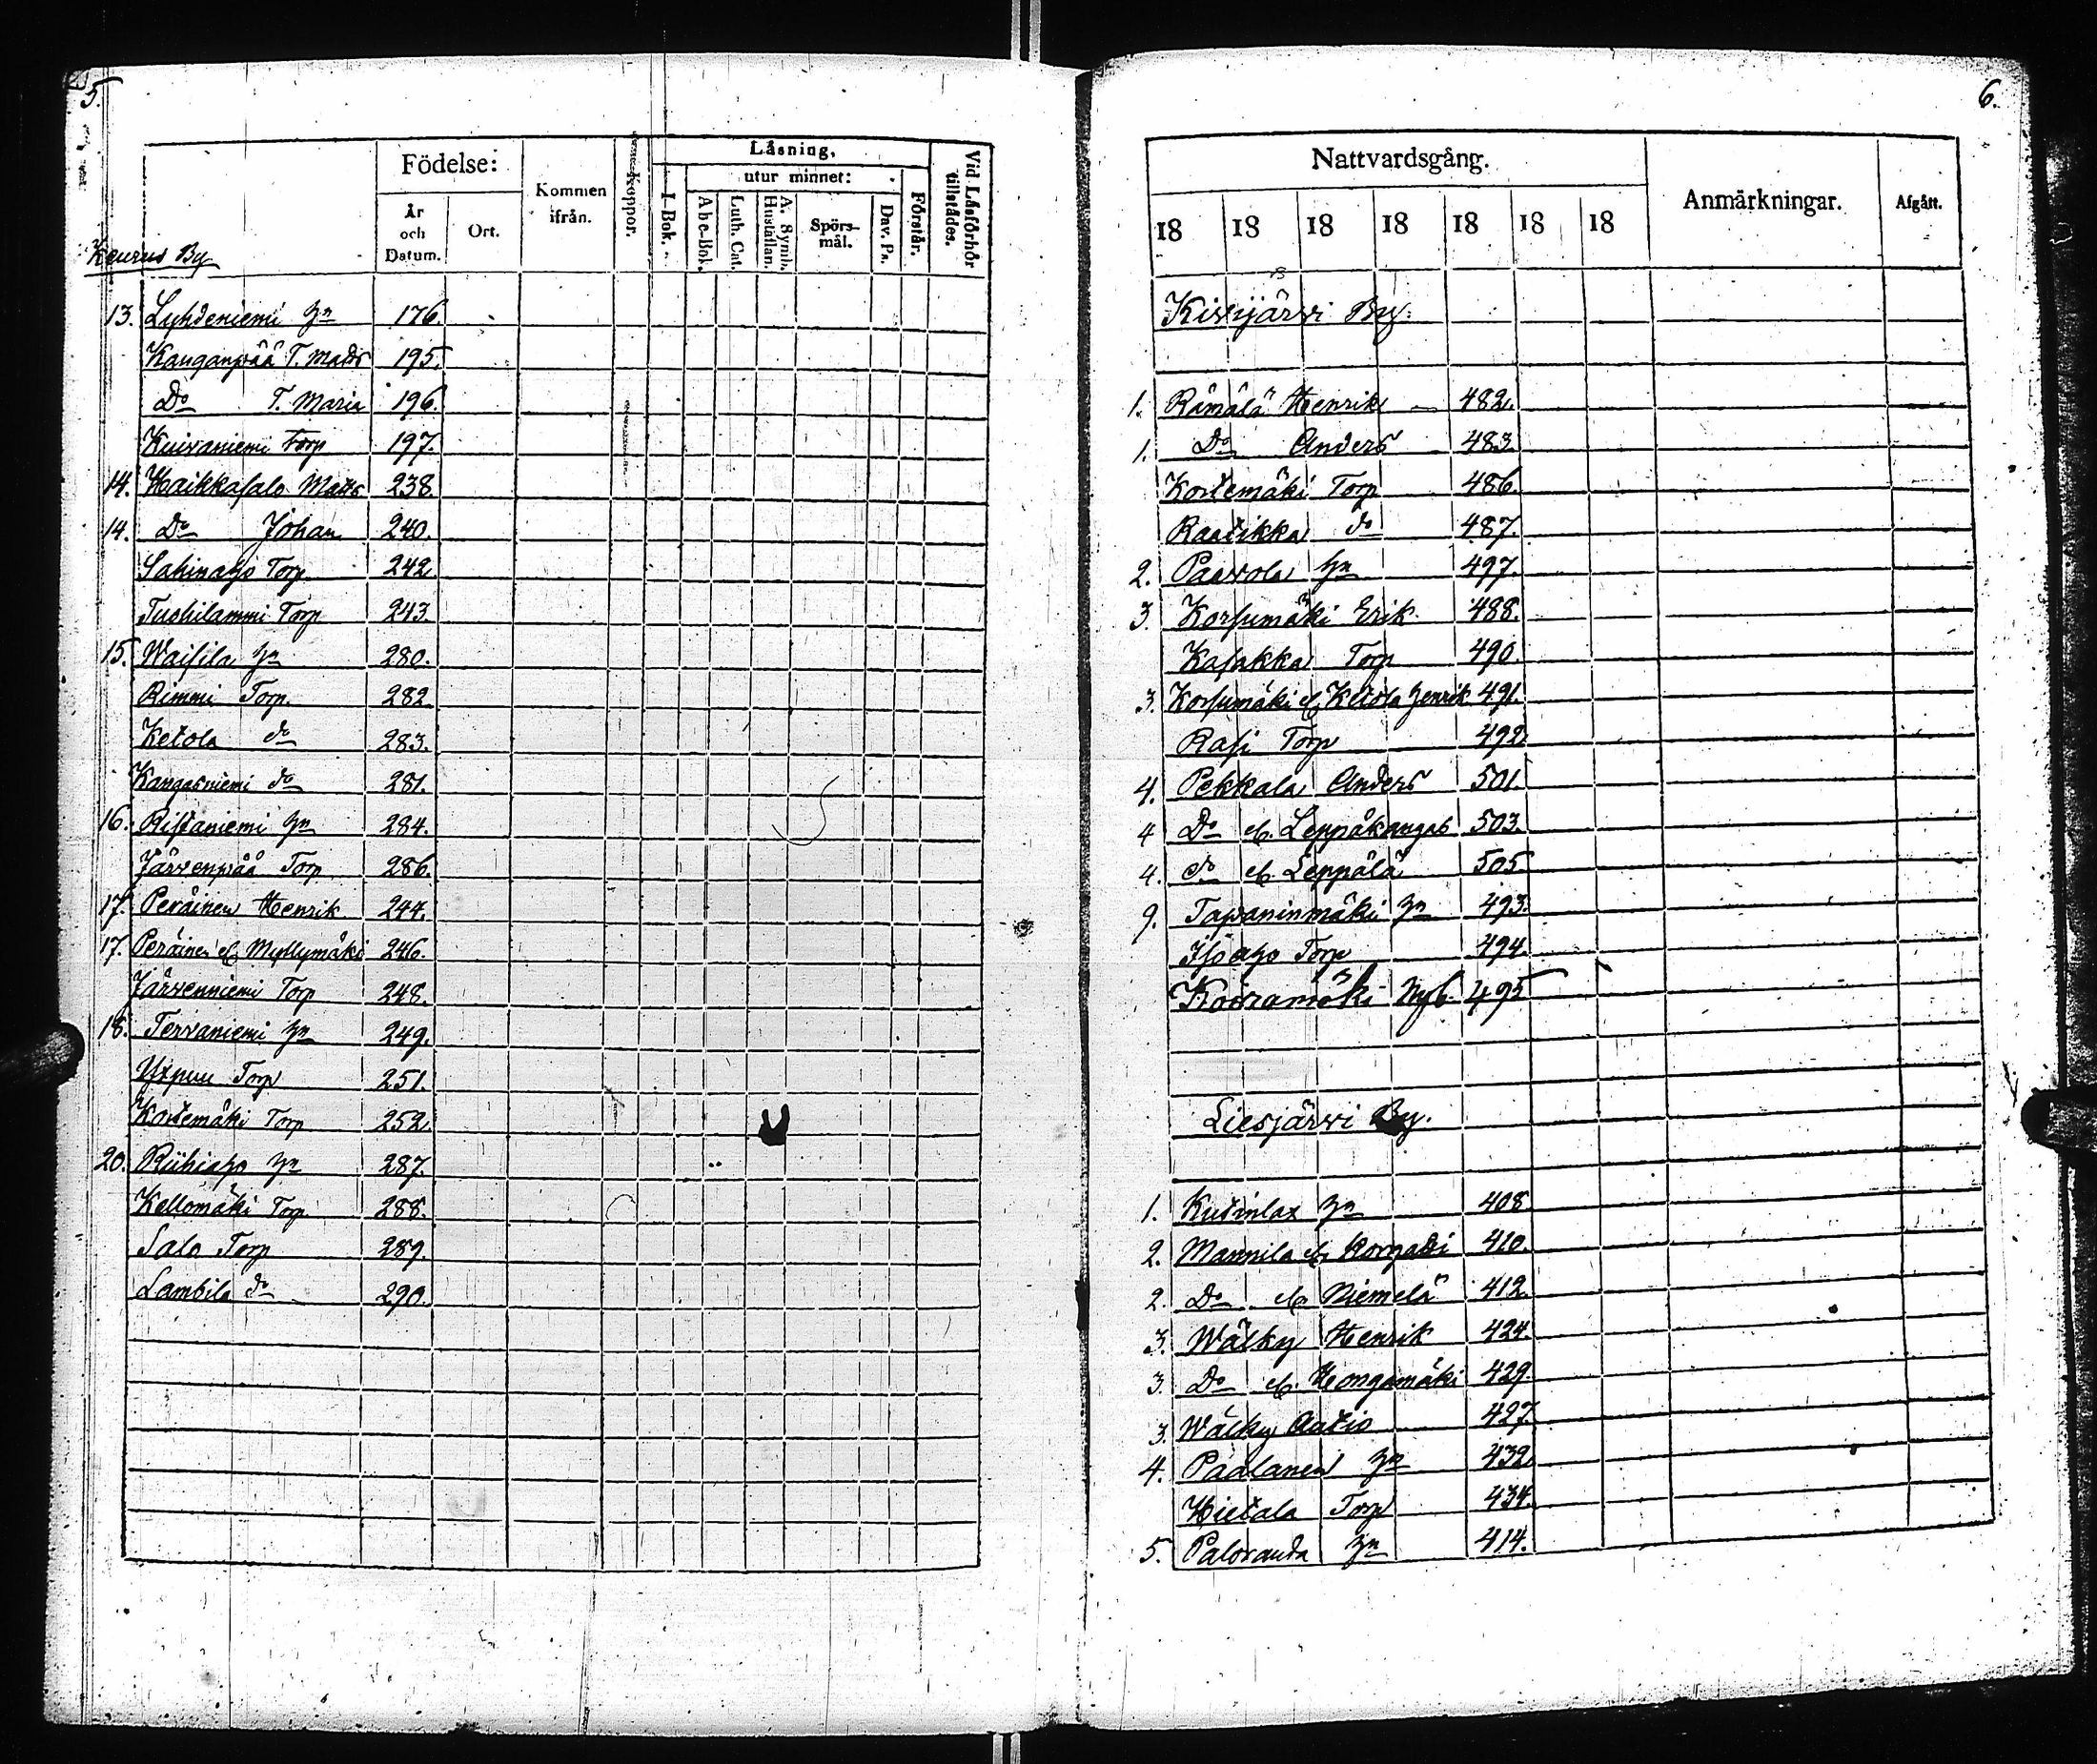 5.
Födelse:
Kommen ifrån.
Koppor.
Läsning,
utur minnet:
I Bok.
Abc-Bok.
Luth. Cat.
A. Symb. Hustaflan.
Spörs-mål.
Dav. Ps.
Förstår.
Vid Läsförhör tillstådes.
År och Datum.
Ort.
Keurus By
13. Lyhdeniemi hn 176.
Kauganpää T. Matts 195.
Do T. Maria 196.
Kuivaniemi Torp 197.
14. Haikkasalo Matts 238.
14. Do Johan 240.
Sahinaho Torp 242
Tuohilammi Torp 243.
15. Waisila hn 280.
Rimmi Torp. 282.
Ketola do 283.
Kangasniemi do 281.
16. Ristaniemi hn 284.
Järvenpää Torp 286.
17. Peräinen Henrik 244.
17. Peräinen el. Myllymäki 246.
Järvenniemi Torp 248.
18. Tervaniemi hn 249.
Yxpuu Torp 251.
Kortemäki Torp 252.
20. Riihiaho hn 287.
Kellomäki Torp. 288.
Salo Torp 289.
Lambila do 290.
6.
Nattvardsgång.
Anmärkningar.
Afgått.
18 18 18 18 18 18 18
Kivijärvi By.
1. Rämälä Henrik 482.
1. Do Anders 483.
Kortemäki Torp 486.
Raatikka do 487.
2. Paavola hn 497.
3. Korsumäki Erik 488.
Kasakka Torp 490.
3. Korsumäki el. Ketola Henrik 491.
Rasi Torp 492.
4. Pekkala Anders 501.
4 Do el. Leppäkangas 503.
4. do el. Leppälä 505.
9. Tapaninmäki hn 493.
Isoaho Torp 494.
Kovramäki Nyb. 495
Liesjärvi By.
1. Kutinlax hn 408.
2. Mannila el. 410.
2. Do el. Niemelä 412.
3. Wälky Henrik 424.
3. Do el. Hongamäki 429.
3. Wälky Autio 427.
4. Päälanen hn 432.
Hietala Torp 434.
5. Paloranda hn 414.